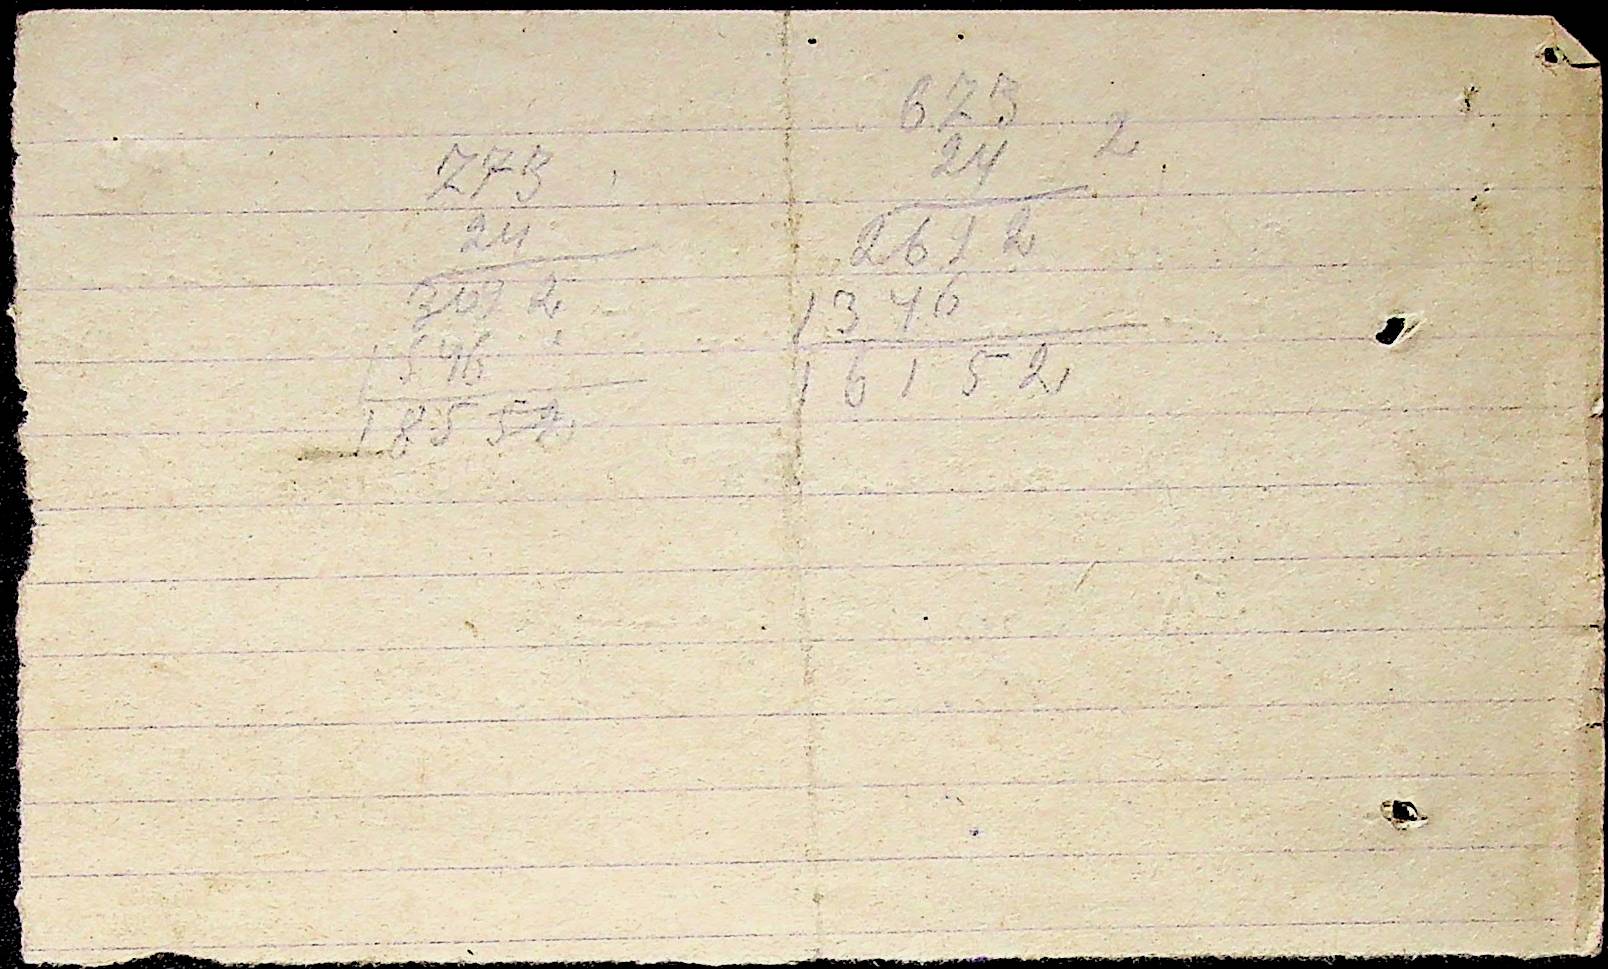 773
24
3092
1546
18552
673
24 2
2692
1346
16152